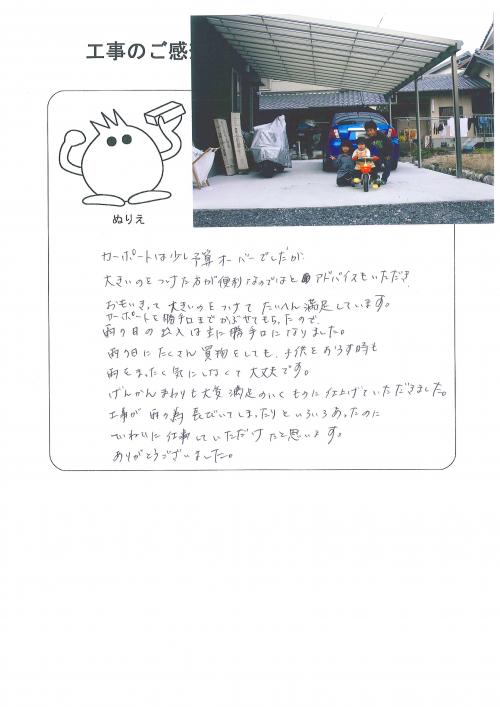 工事のご感
ぬりえ
カーポートは少し予算オーバーでしたが
大きいのをつけた方が便利なのではと アドバイスもいただき
おもいきって 大きいのをつけて たいへん満足しています。
カーポートを勝手口までかぶせてもらったので、
雨の日の出入は主に勝手口になりました。
雨の日にたくさん買物をしても、子供をおろす時も
雨をまったく気にしなくて大丈夫です。
げんかんまわりも大変満足のいくものに仕上げていただきました。
工事が雨の為長びいてしまったりといろいろあったのに
ていねいに仕事していただけたと思います。
ありがとうございました。